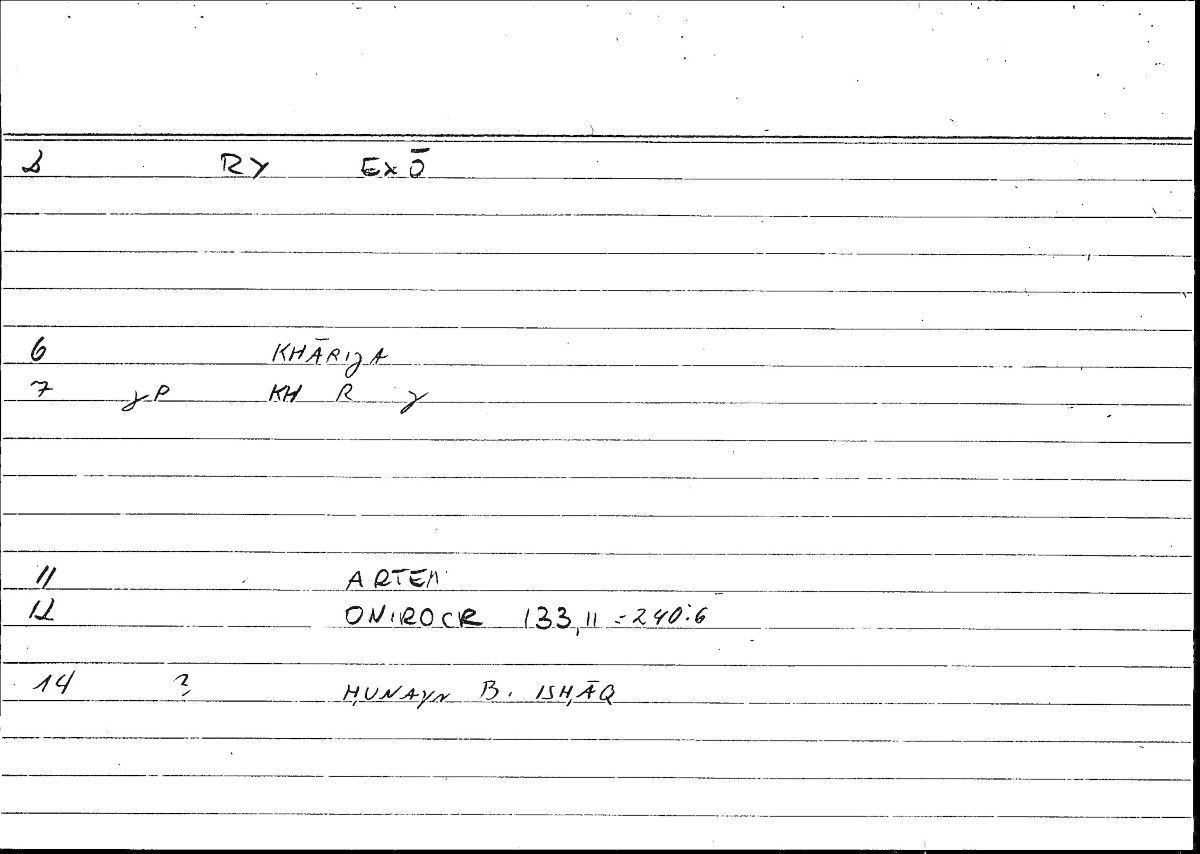 RY EXŌ
6 KHĀRIJA
7 γP KH R γ
11 ARTEM
12 ONIROCR 133,11 = 240:6
14 ? ḤUNAYN B. ISḤĀQ